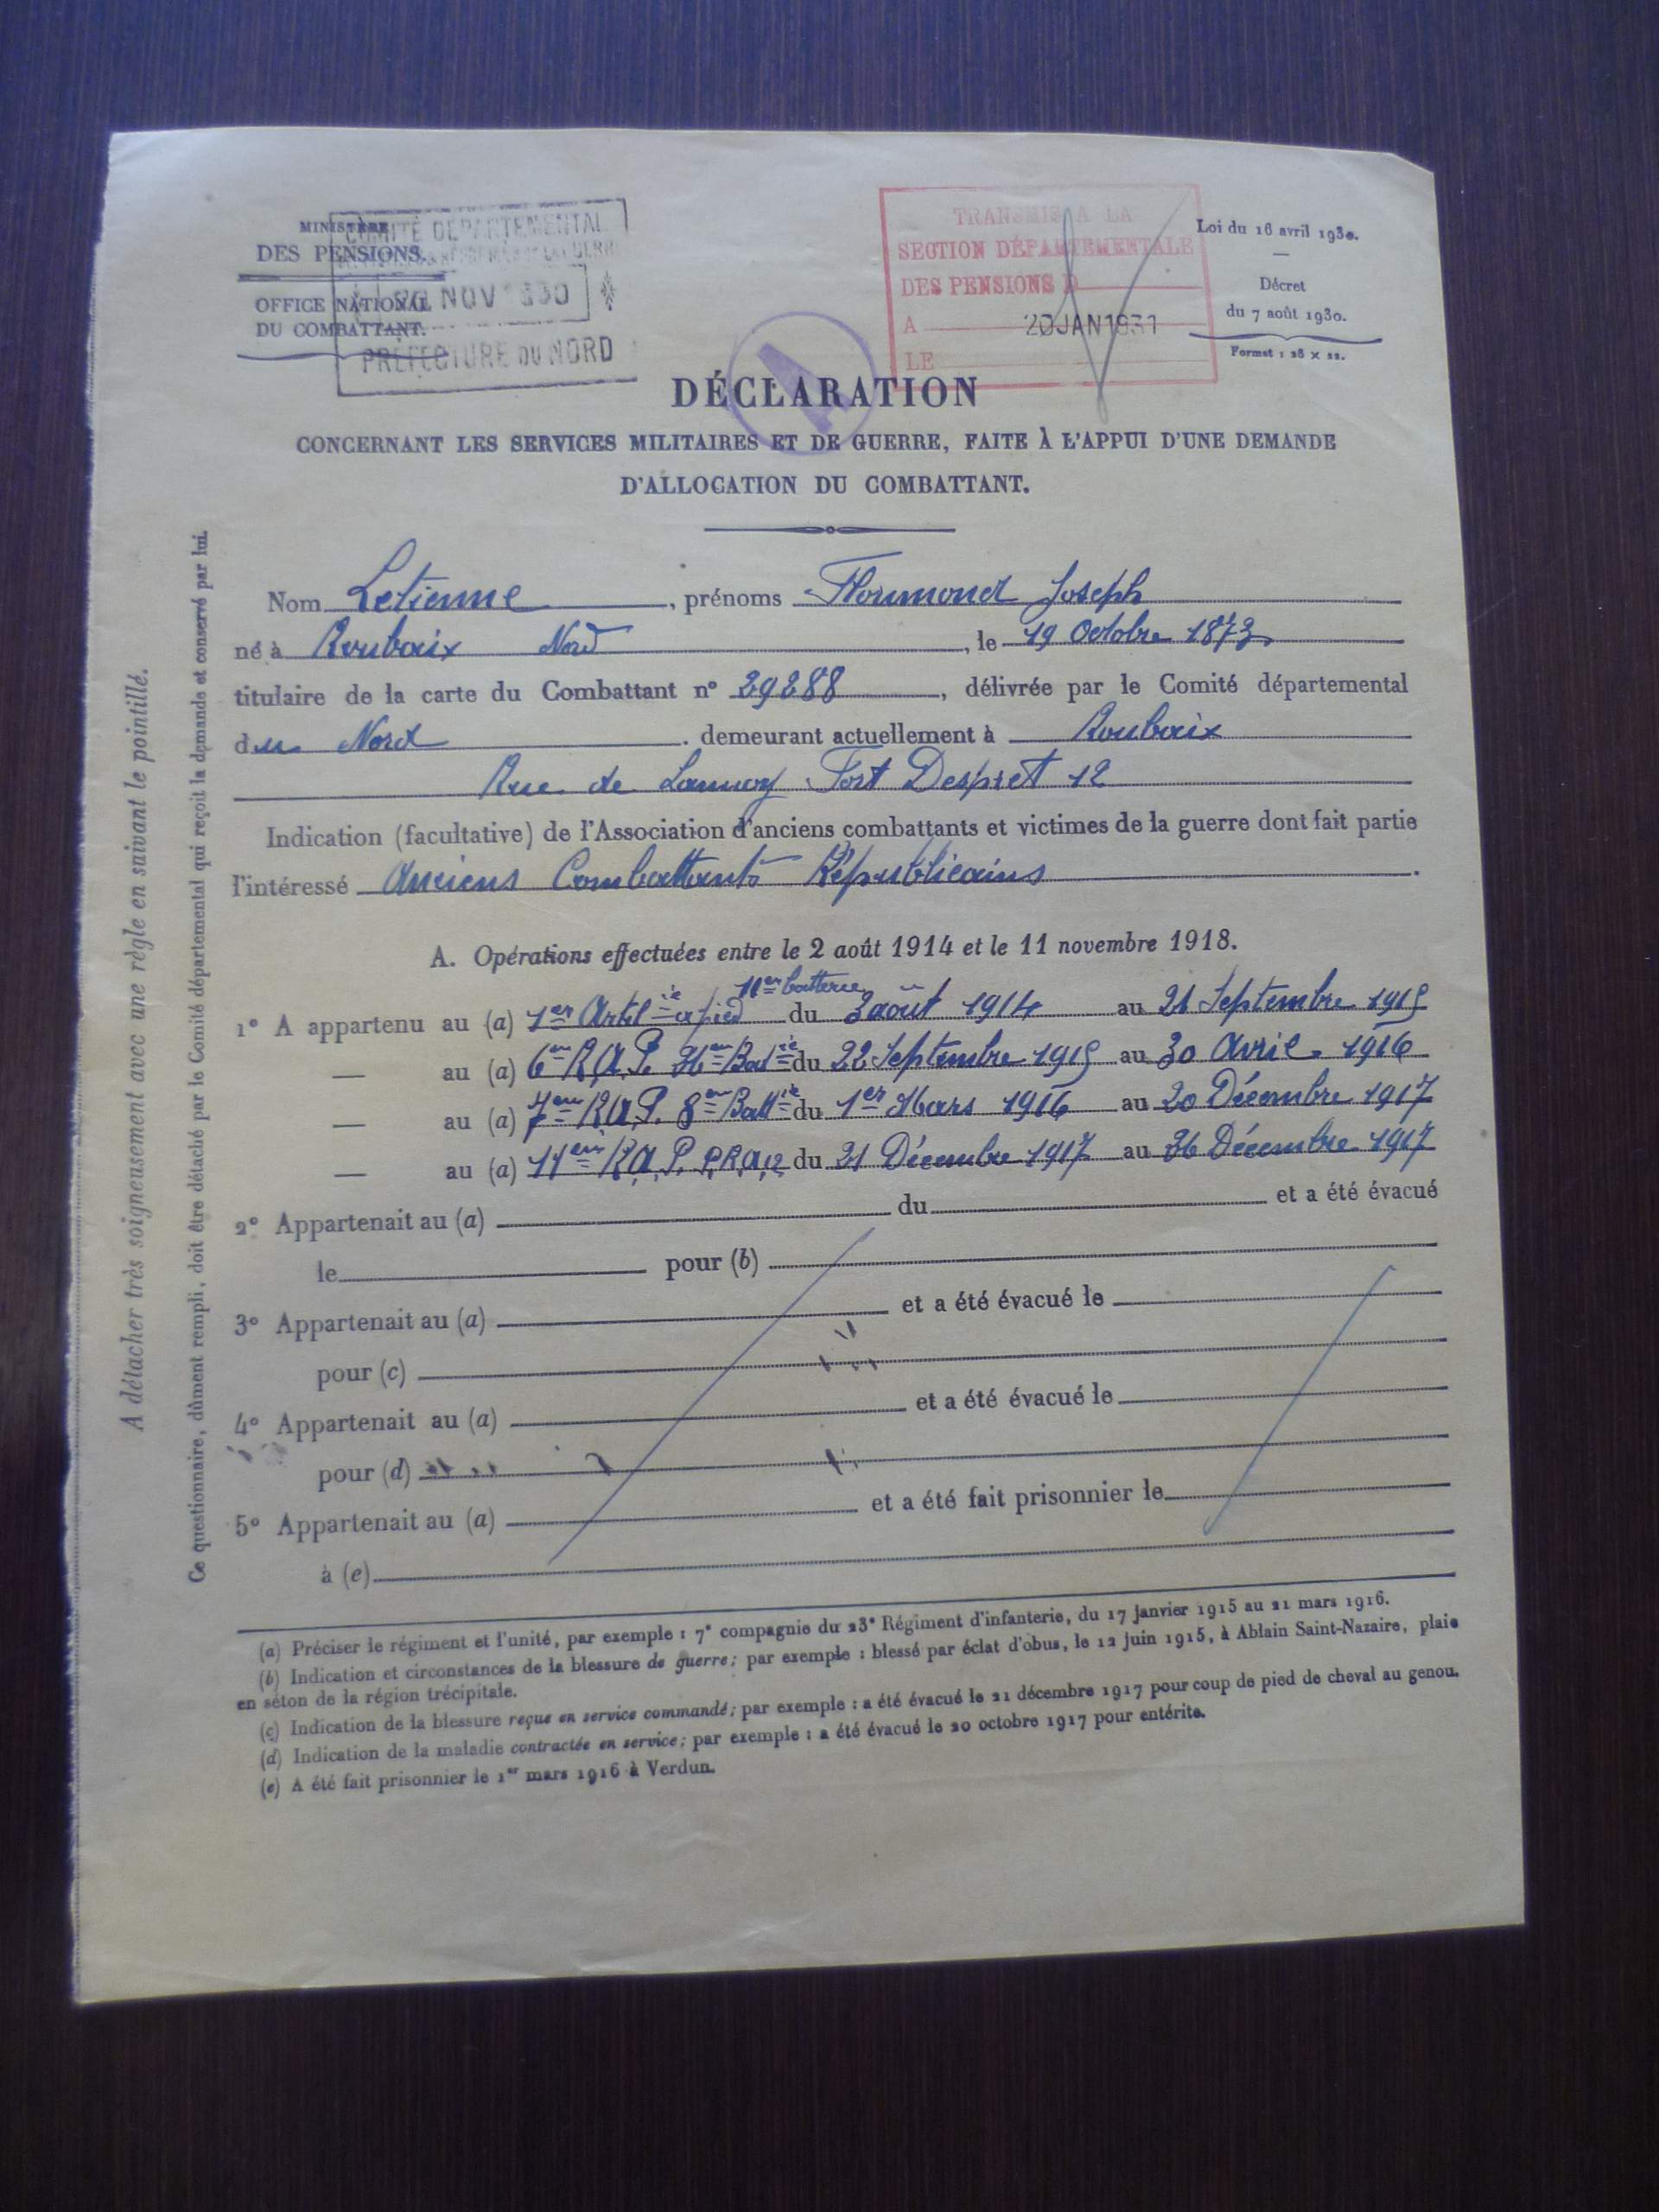 MINISTÈRE
DES PENSIONS.
OFFICE NATIONAL
DU COMBATTANT.
COMITÉ DÉPARTEMENTAL
NOV 1930
PRÉFECTURE DU NORD
TRANSMIS A LA
SECTION DÉPARTEMENTALE
DES PENSIONS D
A
20 JAN 1931
LE
Loi du 16 avril 1930.
Décret
du 7 août 1930.
Format : 28 × 22.
A
DÉCLARATION
CONCERNANT LES SERVICES MILITAIRES ET DE GUERRE, FAITE À L'APPUI D'UNE DEMANDE
D'ALLOCATION DU COMBATTANT.
A détacher très soigneusement avec une règle en suivant le pointillé.
Ce questionnaire, dûment rempli, doit être détaché par le Comité départemental qui reçoit la demande et conservé par lui.
Nom Letienne, prénoms Florimond Joseph
né à Roubaix Nord, le 19 Octobre 1873
titulaire de la carte du Combattant n° 29288, délivrée par le Comité départemental
du Nord. demeurant actuellement à Roubaix
Rue de Lannoy Fort Despret 12
Indication (facultative) de l'Association d'anciens combattants et victimes de la guerre dont fait partie
l'intéressé Anciens Combattants Républicains.
A. Opérations effectuées entre le 2 août 1914 et le 11 novembre 1918.
11em batterie
1° A appartenu au (a) 1er Artilie à pied du 3 août 1914 au 21 Septembre 1915
— au (a) 6em R.A.P. 36em Batie du 22 Septembre 1915 au 30 Avril 1916
— au (a) 7em R.A.P. 8em Battie du 1er Mars 1916 au 20 Décembre 1917
— au (a) 11em R.A.P. du 21 Décembre 1917 au 26 Décembre 1917
2° Appartenait au (a) du et a été évacué
le pour (b)
3° Appartenait au (a) et a été évacué le
pour (c)
4° Appartenait au (a) et a été évacué le
pour (d)
5° Appartenait au (a) et a été fait prisonnier le
à (e)
(a) Préciser le régiment et l'unité, par exemple : 7e compagnie du 23e Régiment d'infanterie, du 17 janvier 1915 au 21 mars 1916.
(b) Indication et circonstances de la blessure de guerre; par exemple : blessé par éclat d'obus, le 12 juin 1915, à Ablain Saint-Nazaire, plaie
en séton de la région trécipitale.
(c) Indication de la blessure reçue en service commandé; par exemple : a été évacué le 21 décembre 1917 pour coup de pied de cheval au genou.
(d) Indication de la maladie contractée en service; par exemple : a été évacué le 20 octobre 1917 pour entérite.
(e) A été fait prisonnier le 1er mars 1916 à Verdun.